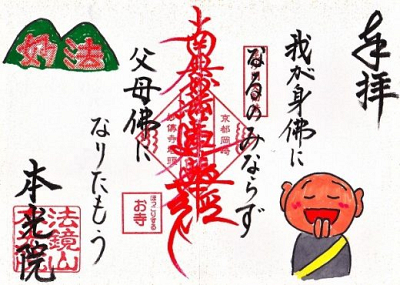 奉拝
我が身佛に
なるのみならず
京都岡崎
南無妙法蓮華経
父母佛に
なりたもう
ほっこりする
お寺
妙法
法鏡山
本光院